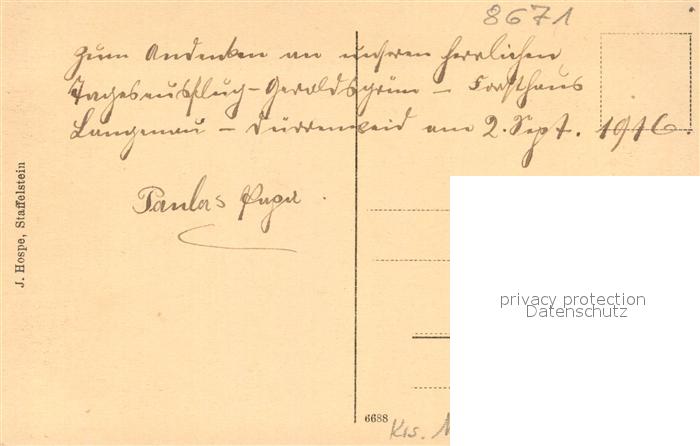 8671
Zum Andenken an unseren herrlichen
Tagesausflug - Geroldsgrün - Forsthaus
Langenau - Dürrenwaid am 2. Sept. 1916.
Paulas Papa.
J. Hospe, Staffelstein
privacy protection
Datenschutz
6688
Krs.